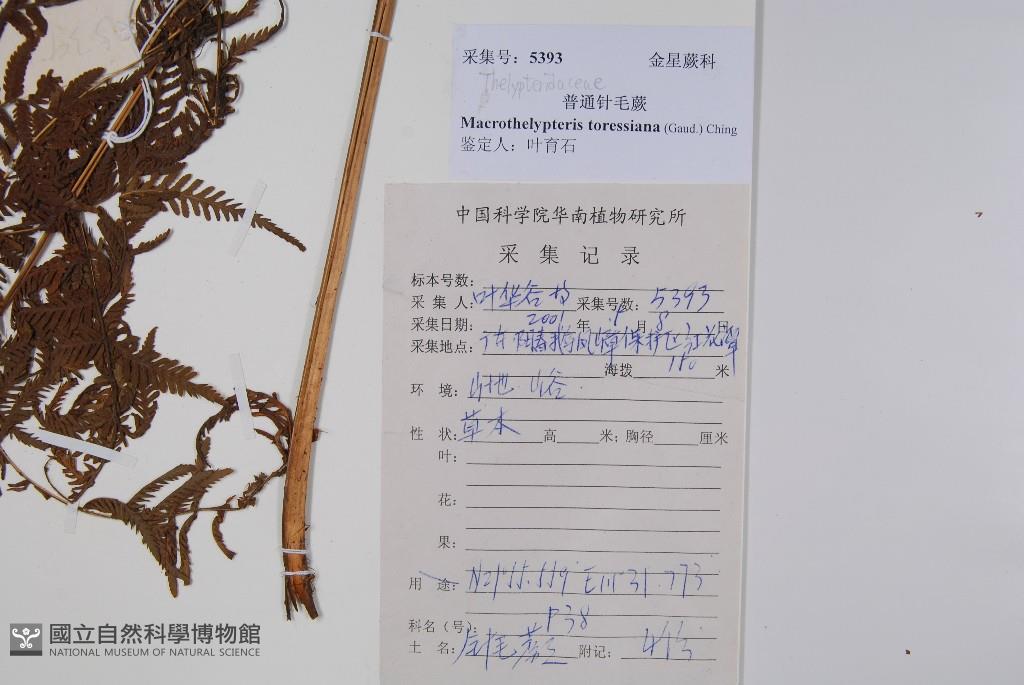 采集号：5393 金星蕨科
Thelypteridaceae
普通针毛蕨
Macrothelypteris toressiana (Gaud.) Ching
鉴定人：叶育石
中国科学院华南植物研究所
采集记录
标本号数：
采集人：叶华谷 采集号数：5393
采集日期：2001年 月8日
采集地点：保护区
海拨180米
环境：山地.山谷.
性状：草本 高 米；胸径 厘米
叶：
花：
果：
用途：
科名（号）：P38
土名： 附记：
國立自然科學博物館
NATIONAL MUSEUM OF NATURAL SCIENCE